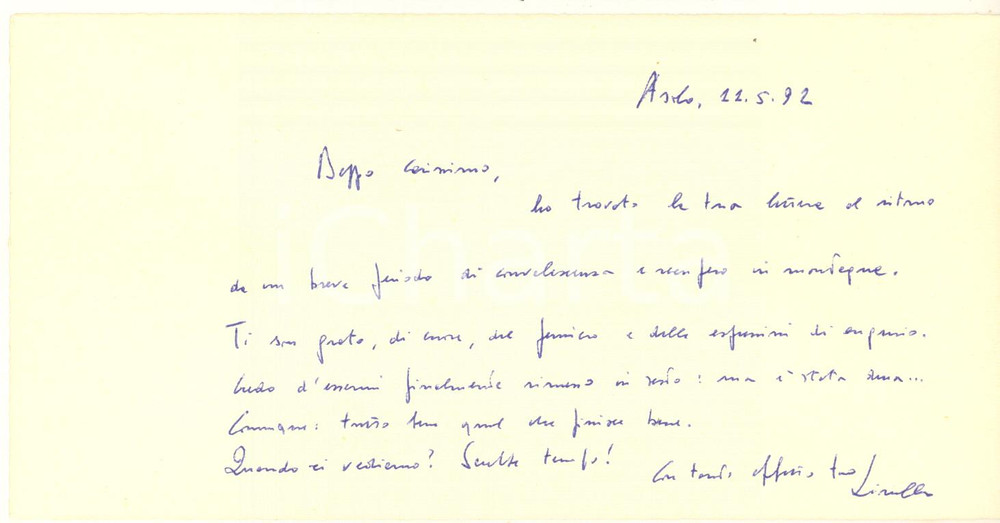 Asolo, 11.5.92
Beppo carissimo,
ho trovato la tua lettera al ritorno
da un breve periodo di convalescenza e recupero in montagna.
Ti son grato, di cuore, del pensiero e delle espressioni di augurio.
Credo d'essermi finalmente rimesso in sesto: ma è stata dura...
Comunque: tutto bene quel che finisce bene.
Quando ci vediamo? Sarebbe tempo!
Con tanto affetto tuo
iCharta